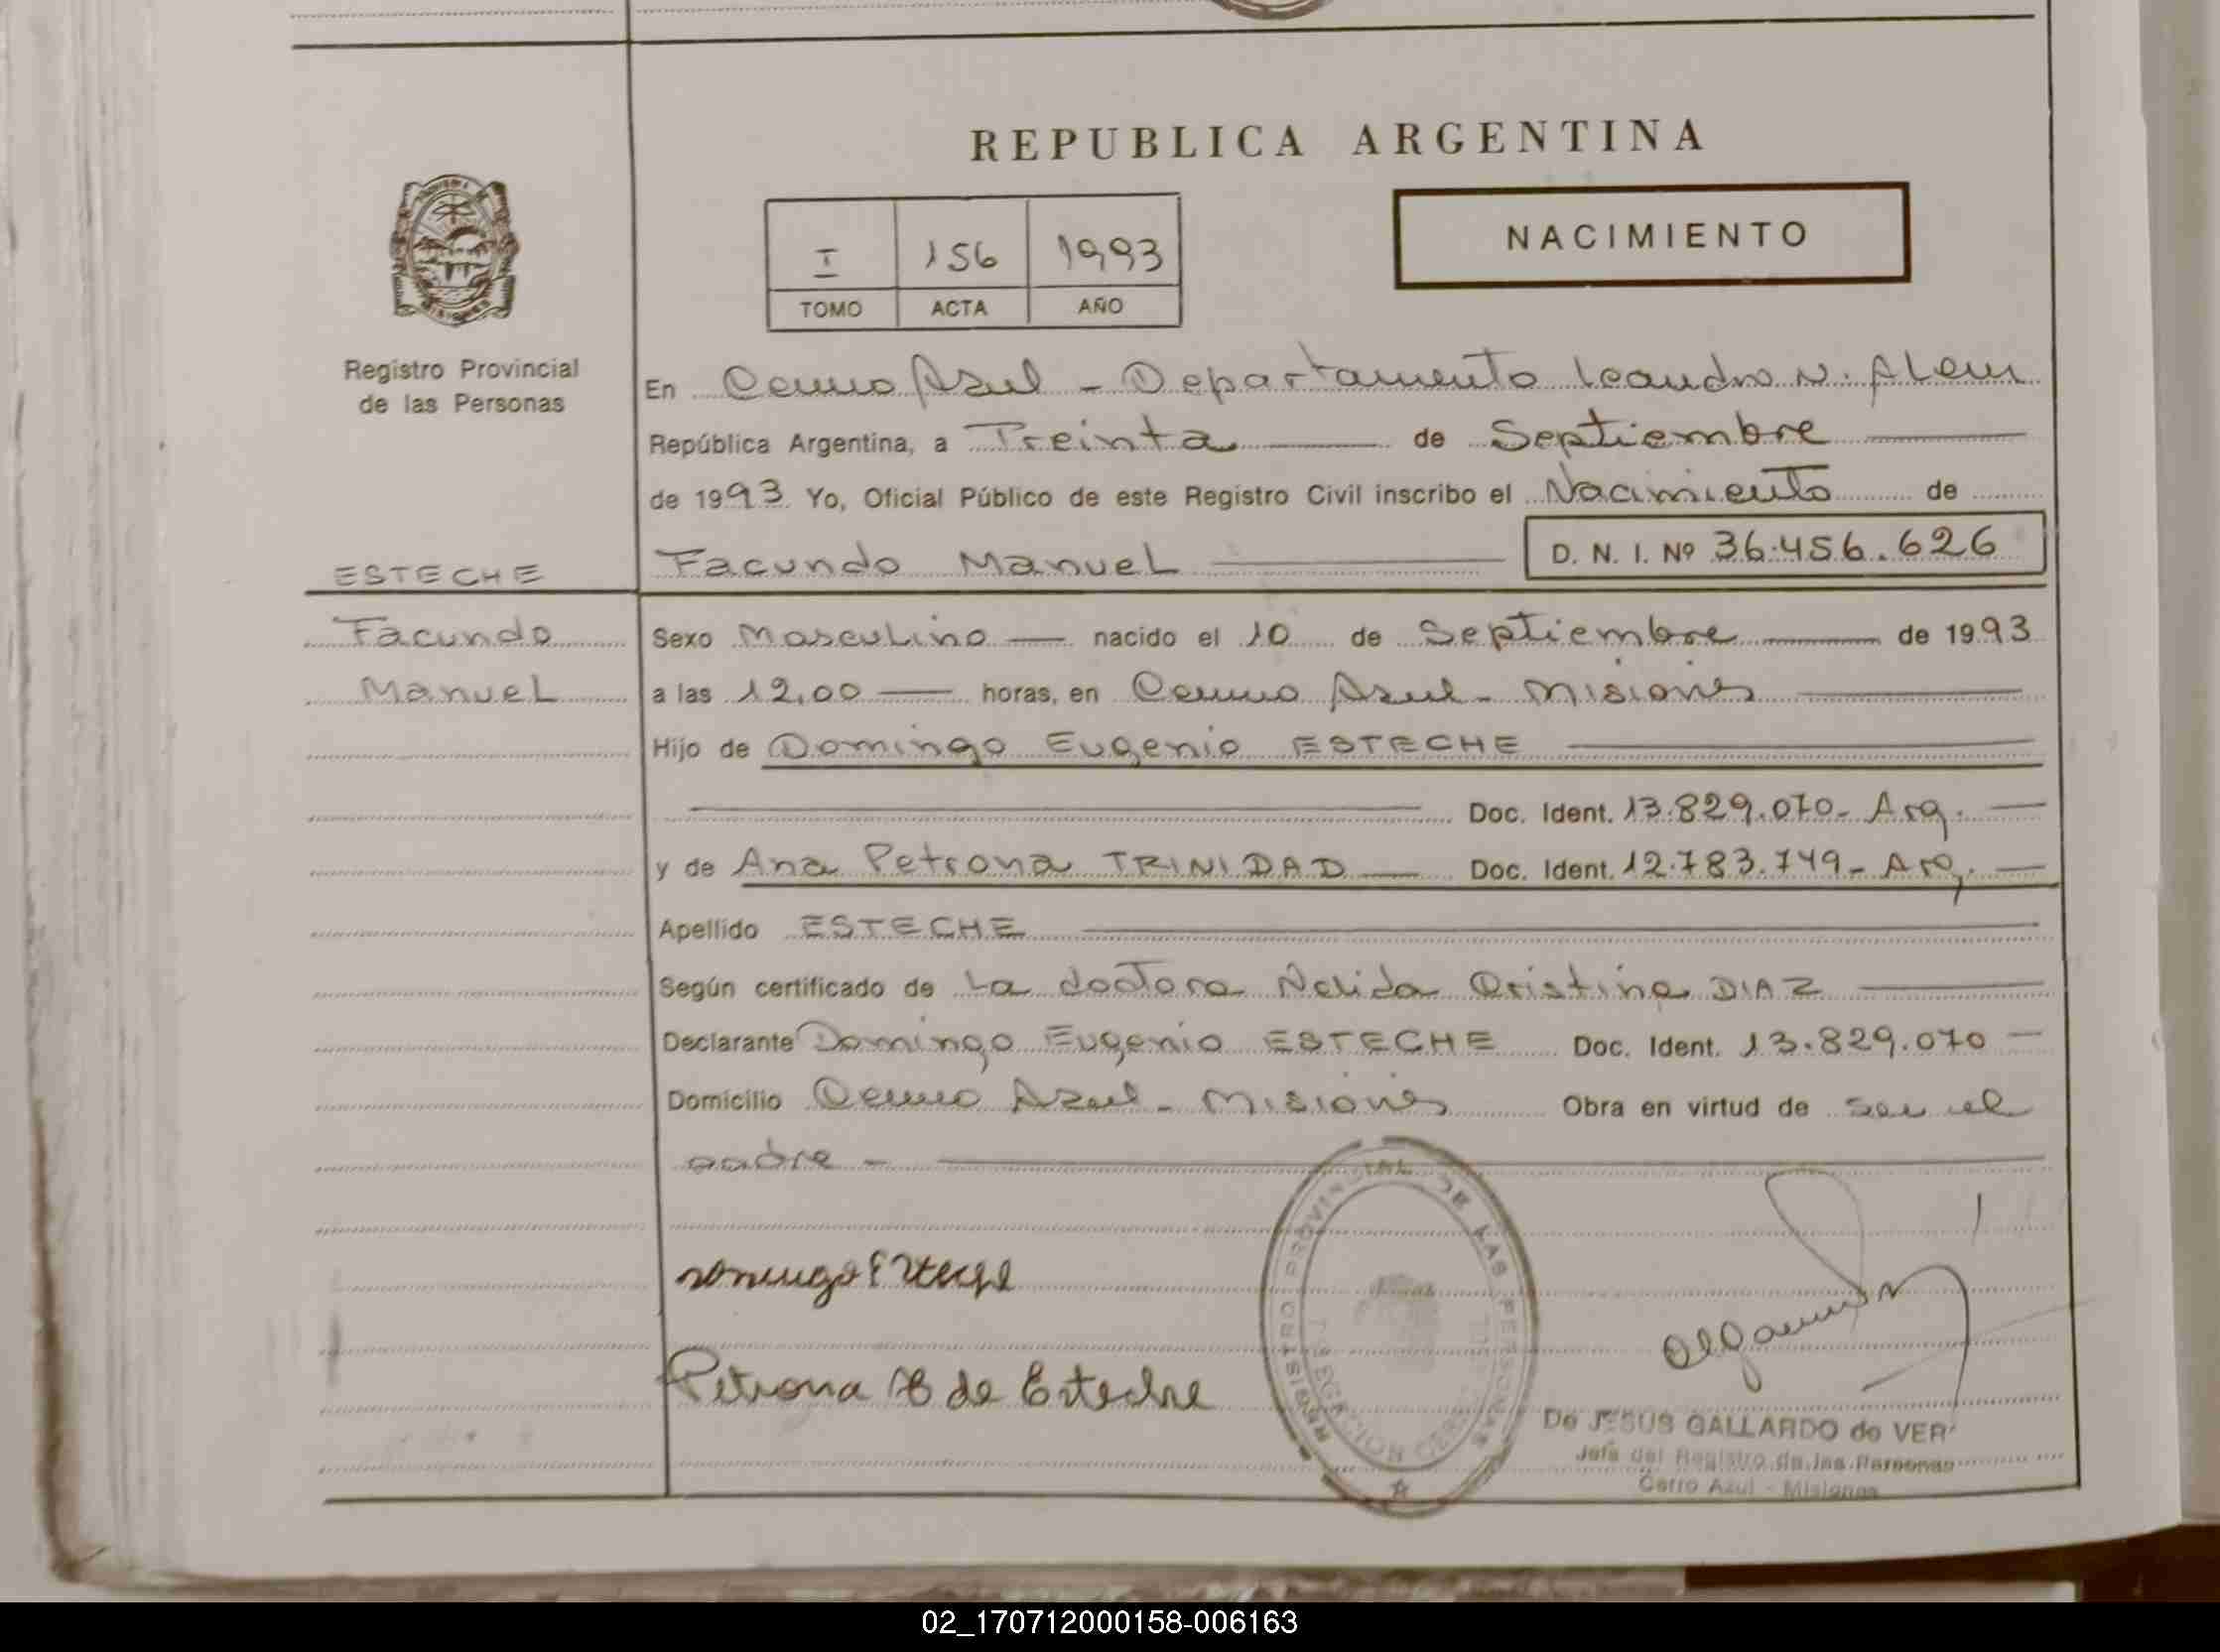 REPUBLICA ARGENTINA
I 156 1993
TOMO ACTA AÑO
NACIMIENTO
Registro Provincial
de las Personas
En Cerro Azul - Departamento Leandro N. Alem
República Argentina, a Treinta de Septiembre
de 1993 Yo, Oficial Público de este Registro Civil inscribo el Nacimiento de
ESTECHE
Facundo Manuel D. N. I. Nº 36.456.626
Facundo
Manuel
Sexo Masculino nacido el 10 de Septiembre de 1993
a las 12,00 horas, en Cerro Azul - Misiones
Hijo de Domingo Eugenio ESTECHE
Doc. Ident. 13.829.070- Arg.
y de Ana Petrona TRINIDAD Doc. Ident. 12.783.749- Arg.
Apellido ESTECHE
Según certificado de La doctora Nelida Cristina DIAZ
Declarante Domingo Eugenio ESTECHE Doc. Ident. 13.829.070
Domicilio Cerro Azul - Misiones Obra en virtud de ser el
padre -
REGISTRO PROVINCIAL DE LAS PERSONAS
Petrona de Esteche
De JESUS GALLARDO de VER
Jefa del Registro de las Personas
Cerro Azul - Misiones
02_170712000158-006163